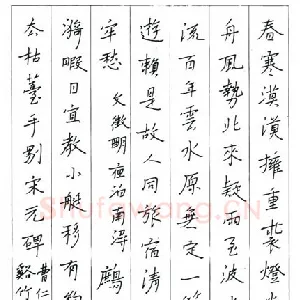 春寒漠漠擁重裘燈火
舟風勢北來疑雨至波
流百年雲水原無定一
遊賴是故人同旅宿清
牢愁 文徵明夜泊南潯 鷓
漪暇日宜小艇移有約
枯薹手剔宋元碑 曹仁
谿竹
Shufawang.cn